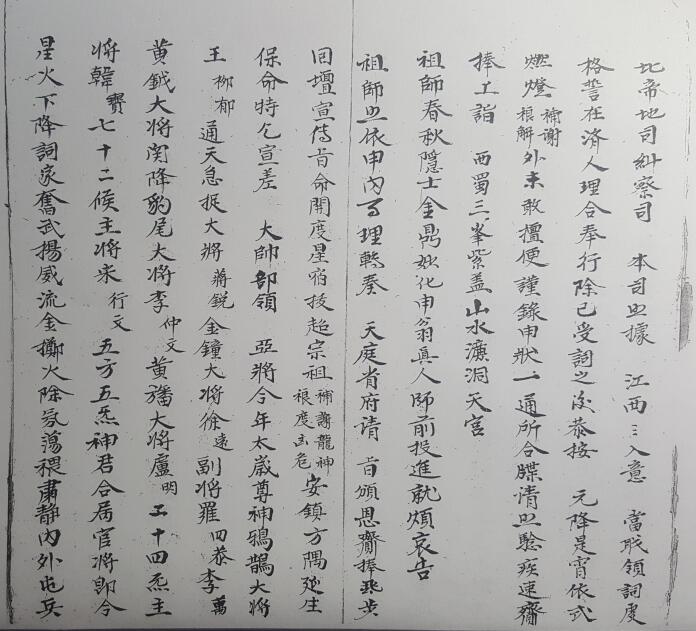 北帝地司糾察司 本司㘴據 江西云云入意 當職領詞虔
格誓在済人理合奉行除已受詞之後恭按 元降是宵依式
燃燈補謝根解外未敢擅便謹錄申狀一通所合牒请㘴驗疾速齎
捧上詣 西蜀三峯紫盖山水濂洞天宫
祖師春秋隱士金鼎妙化申翁真人師前投進就煩哀告
祖師㘴依申內亊理轉奏 天庭省府请 旨頒恩齎捧飛步
囬壇宣傳旨命開度星宿技超宗祖補謝龍神根度凶危安鎮方隅延生
保命特乞宣差 大帥部領 亞將今年太歲尊神鴉鵲大將
王柳郁通天急捉大將蔣銳金鐘大將徐遠副將羅四恭李萬
黄鉞大将関降豹尾大将李仲文黄旛大将盧明二十四炁主
将韓寶七十二候主将宋行文五方五炁神君合属官将即令
星火下降詞家奮武揚威流金擲火除氛蕩穢肅静內外屯兵